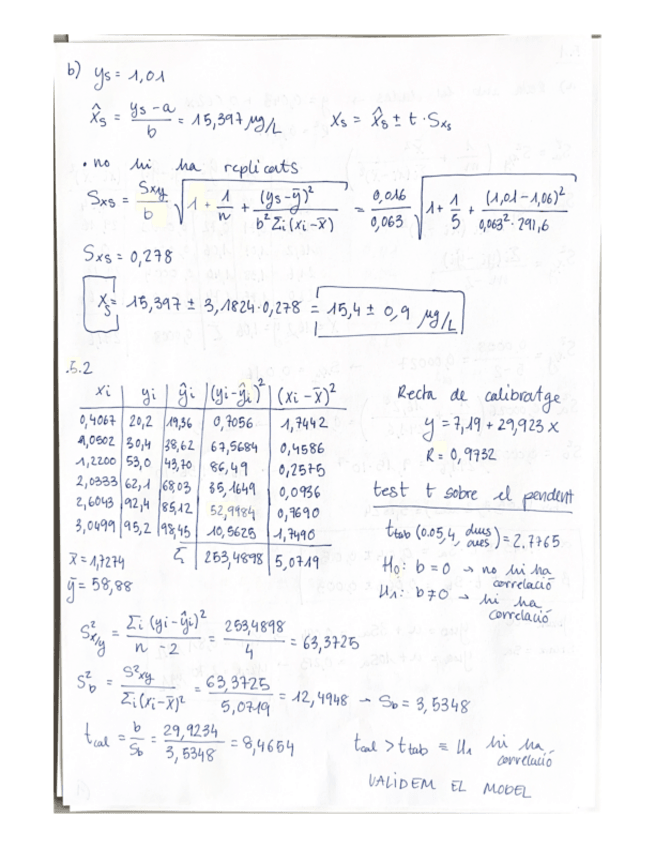 b) ys = 1,01
x̂s = (ys - a) / b = 15,397 µg/L    xs = x̂s ± t · Sxs
· no hi ha replicats
Sxs = Sxy / b √(1 + 1/n + (ys - ȳ)² / (b² Σi(xi - x̄))) = 0,016 / 0,063 √(1 + 1/5 + (1,01 - 1,06)² / (0,063² · 291,6))
Sxs = 0,278
xs = 15,397 ± 3,1824 · 0,278 = 15,4 ± 0,9 µg/L
.5.2
xi | yi | ŷi | (yi - ŷi)² | (xi - x̄)²
0,4067 | 20,2 | 19,36 | 0,7056 | 1,7442
1,0502 | 30,4 | 38,62 | 67,5684 | 0,4586
1,2200 | 53,0 | 43,70 | 86,49 | 0,2575
2,0333 | 62,1 | 68,03 | 35,1649 | 0,0936
2,6043 | 92,4 | 85,12 | 52,9984 | 0,7690
3,0499 | 95,2 | 98,45 | 10,5625 | 1,7490
Σ | 253,4898 | 5,0719
x̄ = 1,7274
ȳ = 58,88
Recta de calibratge
y = 7,19 + 29,923 x
R = 0,9732
test t sobre el pendent
ttab (0.05, 4, dues cues) = 2.7765
H0: b = 0 → no hi ha correlació
H1: b ≠ 0 → hi ha correlació
S²x/y = Σi (yi - ŷi)² / (n - 2) = 253,4898 / 4 = 63,3725
S²b = S²xy / Σi(xi - x̄)² = 63,3725 / 5,0719 = 12,4948 → Sb = 3,5348
tcal = b / Sb = 29,9234 / 3,5348 = 8,4654
tcal > ttab ≡ H1 hi ha correlació
VALIDEM EL MODEL